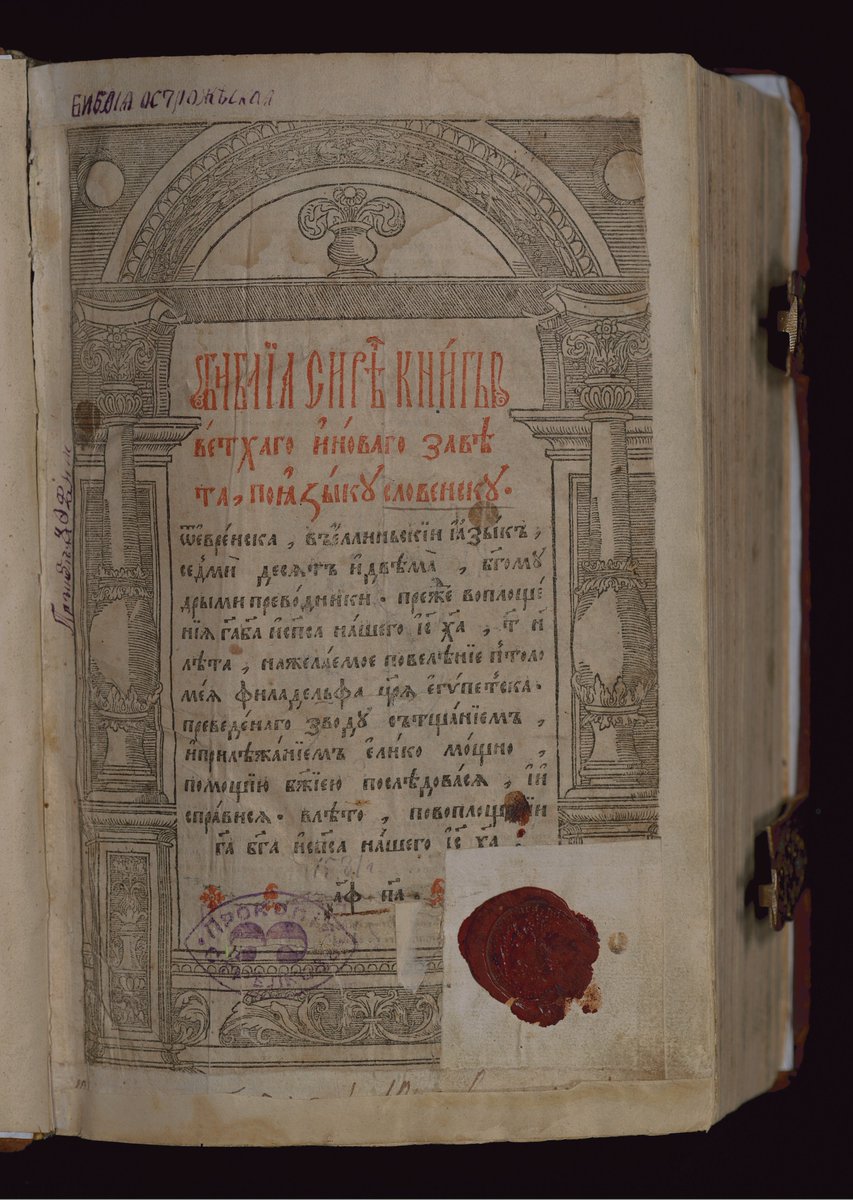 БИБЛІѦ ОСТРОЖЬСКАЯ
БИБЛЇѦ СИРѢ҇Ч КНИ́ГЫ
ВЕ́ТХАГО И҆НО́ВАГО ЗАВѢ́
ТА, ПОꙖ҆ЗЫ́КꙊ СЛОВЕНСКꙊ.
ѿевре́йска, въе҆ллиньскїи ꙗ҆зы́къ,
се́дмⷣи десѧ́тъ и҆двѣма̀, бг҃омꙋ
дрыми прево́дники. пре́жⷣе воплоще́
нїѧ гⷭ҇а бг҃а и҆сп҃са на́шего і҆с҃ х҃а, т҃ и҃
лѣ́та, нажела́емое повелѣ́нїе пⷮоло
ме́ѧ филаде́льфа цр҃ѧ є҆гѵпе́тска.
преведе́наго зво́дꙋ сътща́нїемъ,
и҆прилѣжа́нїемъ е҆ли́ко мо́щно,
помощїю бж҃їею послѣ́довасѧ, і҆и҆
спра́висѧ. влѣ́то, повоплоще́нїи
гⷭ҇а бг҃а и҆сп҃са на́шего і҆с҃ х҃а.
҂аф҃ п҃а.